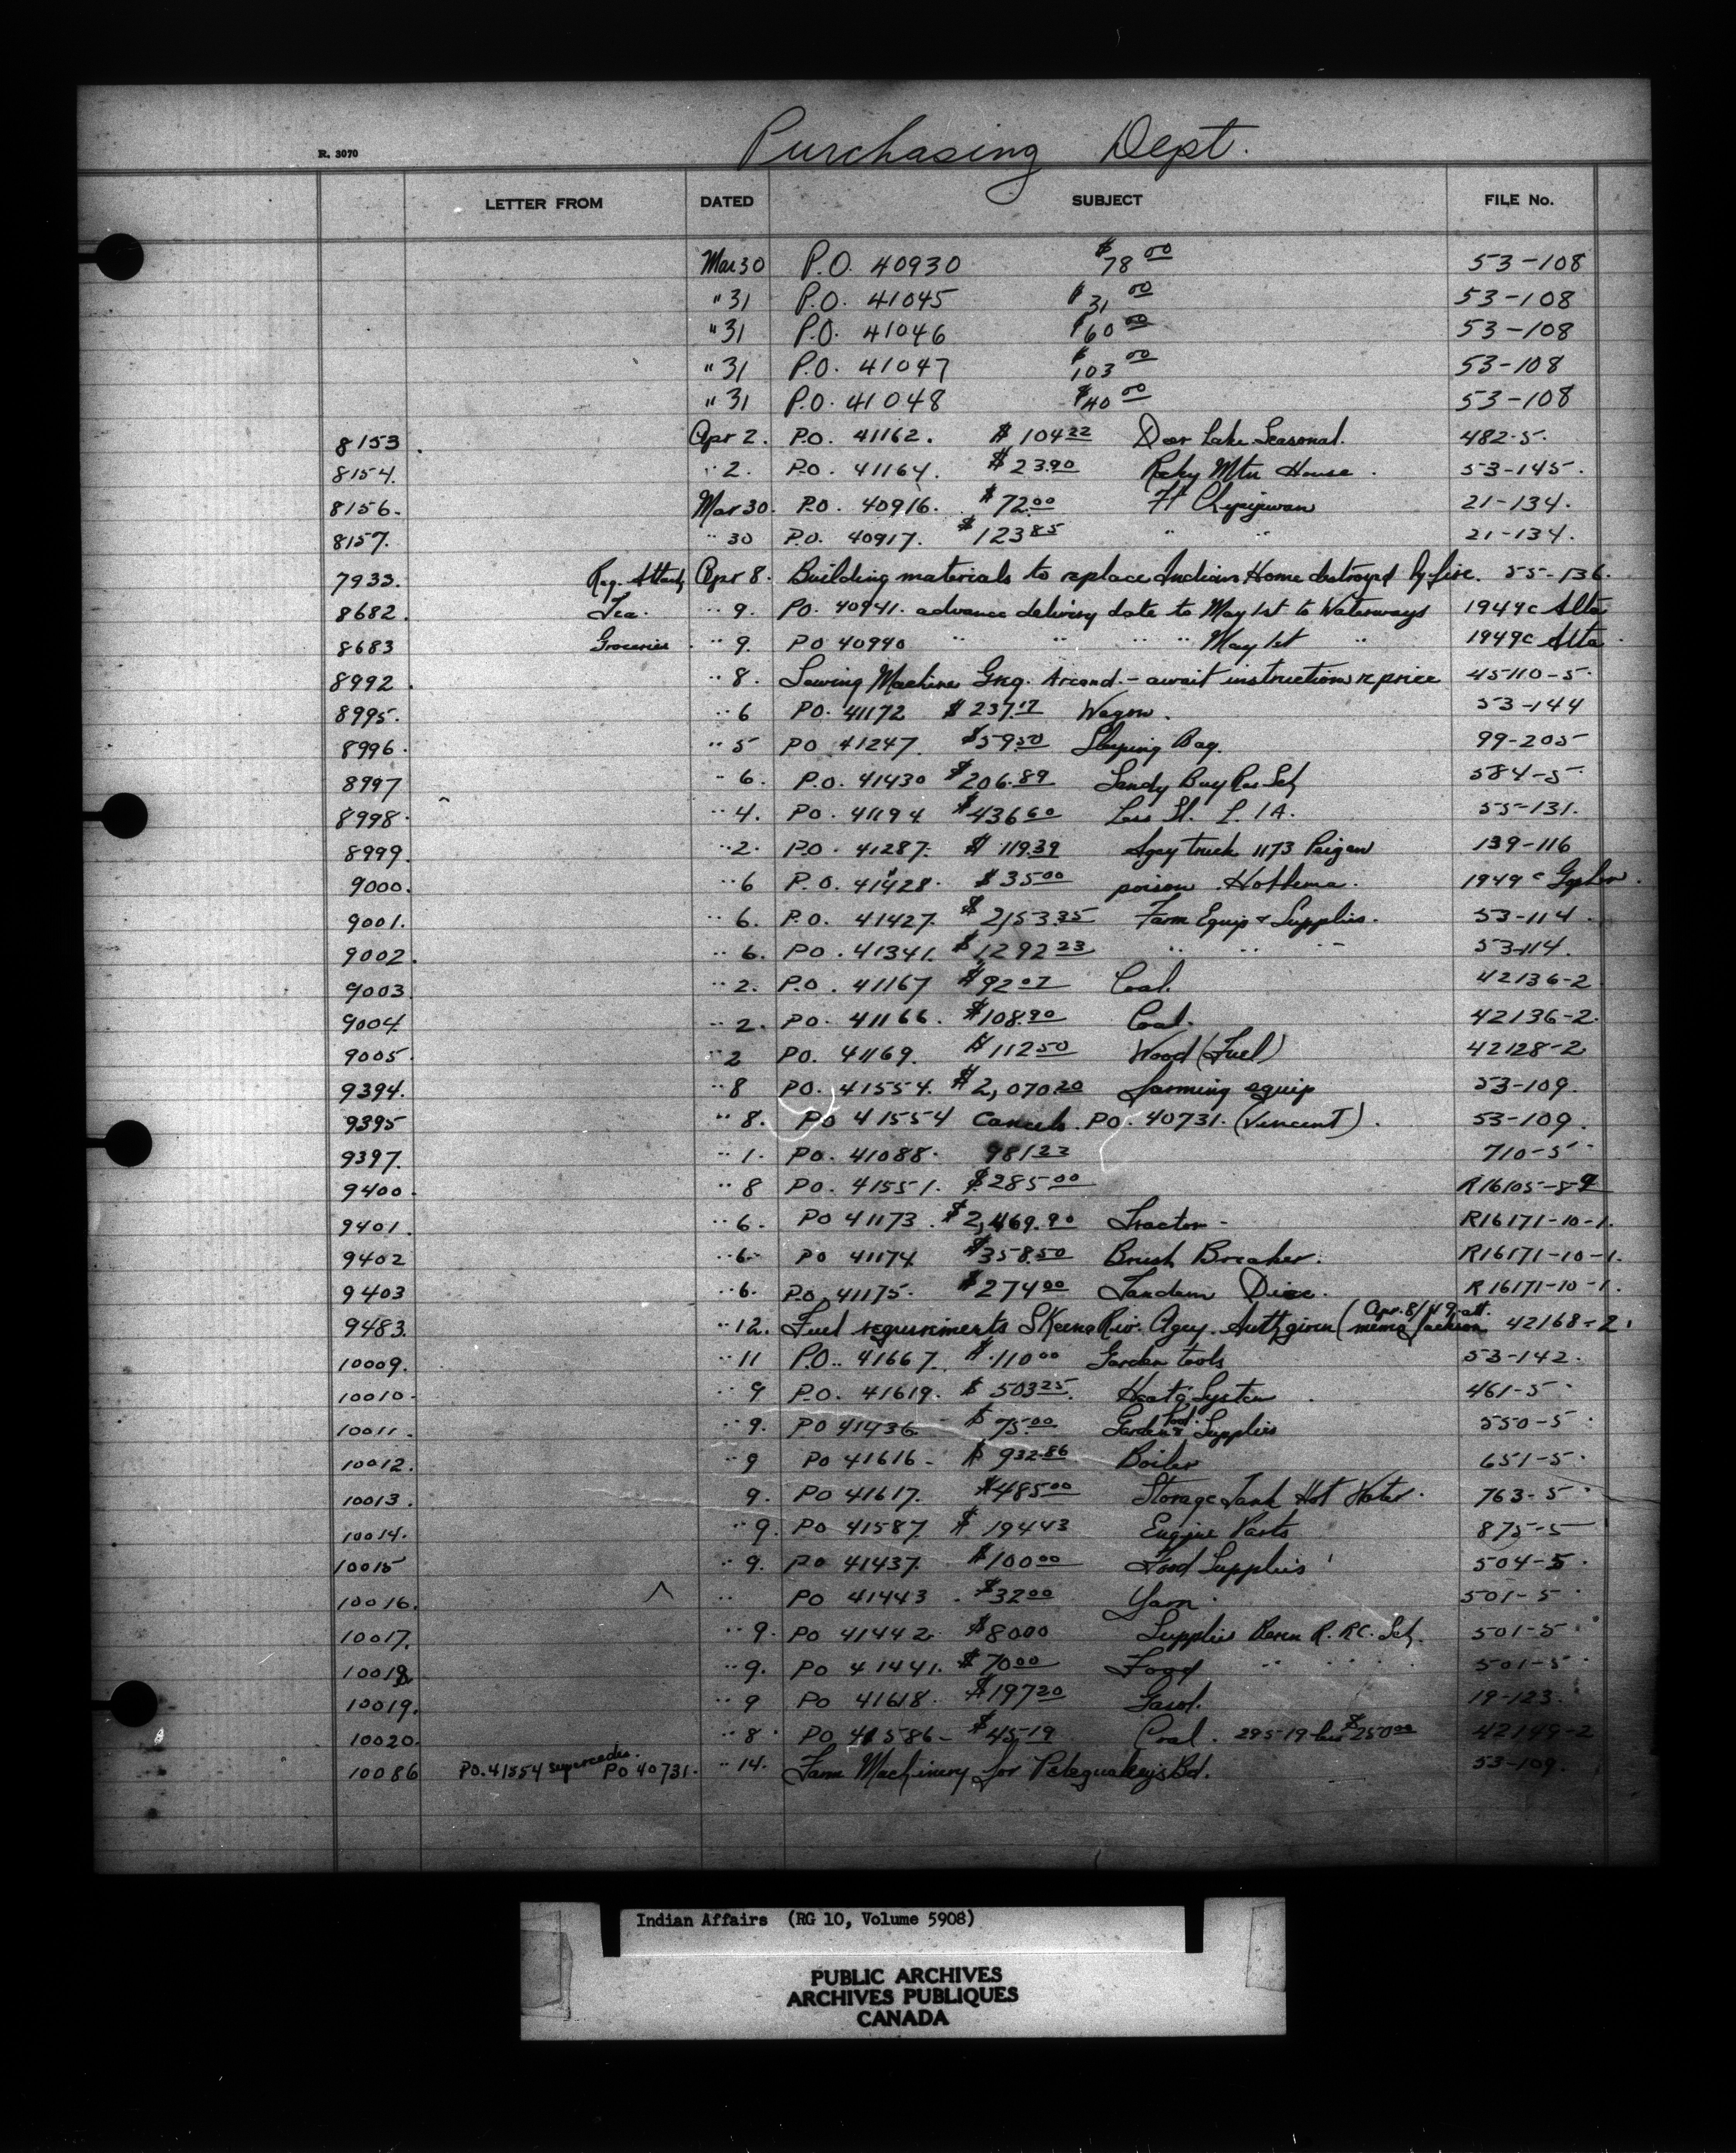 Purchasing Dept.
R. 3070
LETTER FROM DATED SUBJECT FILE No.
Mar 30 P.O. 40930 $78 00 53-108
" 31 P.O. 41045 $31 00 53-108
" 31 P.O. 41046 $60 00 53-108
" 31 P.O. 41047 $103 00 53-108
" 31 P.O. 41048 $40 00 53-108
8153. Apr 2. P.O. 41162. $104 22 Deer Lake Seasonal. 482-5.
8154. " 2. P.O. 41164. $23.90 Rocky Mtn House. 53-145.
8156. Mar 30. P.O. 40916. $72.00 Ft Chipijwan 21-134.
8157. " 30 P.O. 40917. $123 85 " " 21-134.
7933. Reg. Apr 8. Building materials to replace Indian Home destroyed by fire. 55-136.
8682. Tea. " 9. P.O. 40941. advance delivery date to May 1st to Waterways 1949c Alta
8683 Groceries. " 9. PO 40940 " " " " May 1st " 1949c Alta.
8992. " 8. Sewing Machine Greg. Arcand. - await instructions re price 45110-5.
8995. " 6 PO. 41172 $237.17 Wagon. 53-144
8996. " 5 PO 41247. $59.50 Sleeping Bag. 99-205
8997 " 6. P.O. 41430 $206.89 Sandy Bay Res Sch 584-5
8998. " 4. PO. 41194 $436 60 Less St. L. I A. 55-131.
8999. " 2. P.O. 41287. $119.39 Agcy truck 1173 Peigan 139-116
9000. " 6 P.O. 41428. $35.00 poison Hobbema. 1949c Gopher.
9001. " 6. P.O. 41427. $2,153.35 Farm Equip & Supplies. 53-114
9002. " 6. PO. 41341. $1292 23 " " " 53-114.
9003 " 2. P.O. 41167 $92 07 Coal. 42136-2
9004 " 2. PO. 41166. $108.90 Coal. 42136-2.
9005. " 2 PO. 41169. $112 50 Wood (Fuel) 42128-2
9394. " 8 PO. 41554. $2,070.20 farming equip 53-109.
9395 " 8. PO 41554 cancels PO. 40731. (Vincent). 53-109.
9397. " 1. PO. 41088. 981 22 710-5
9400. " 8 PO. 41551. $285.00 R16105-8-9
9401. " 6. PO 41173. $2,469.90 Tractor - R16171-10-1.
9402 " 6. PO 41174 $358.50 Brush Breaker. R16171-10-1.
9403 " 6. PO. 41175. $274 00 Tandem Disc. R16171-10-1.
9483. " 12. Fuel requirements Skeena Riv. Agcy. Auth given (Apr. 8/49 att. memo Jackson 42168-2.
10009. " 11 P.O. 41667. $110 00 Garden tools 53-142.
10010. " 9 P.O. 41619. $503 25. Heatg System 461-5
10011. " 9. PO 41436 $75.00 Garden & Food Supplies 550-5
10012. " 9 PO 41616 - $932.86 Boiler 651-5.
10013. 9. PO 41617. $485 00 Storage Tank Hot Water. 763-5
10014. " 9. PO 41587 $194 43 Engine Parts 875-5
10015 " 9. PO 41437. $100 00 Food Supplies 504-5.
10016. " PO 41443. $32 00 Yarn. 501-5
10017. " 9. PO 41442 $80 00 Supplies Beren R. RC. Sch. 501-5
10018. " 9. PO 41441. $70 00 Food " " " 501-5
10019. " 9 PO 41618. $197 20 Gasol. 19-123.
10020. " 8. PO 41586 - $45 19 Coal. 295.19 less $250 00 42149-2
10086 PO. 41554 supercedes PO 40731. " 14. Farm Machinery for Peteguakey's Bd. 53-109.
Indian Affairs (RG 10, Volume 5908)
PUBLIC ARCHIVES
ARCHIVES PUBLIQUES
CANADA